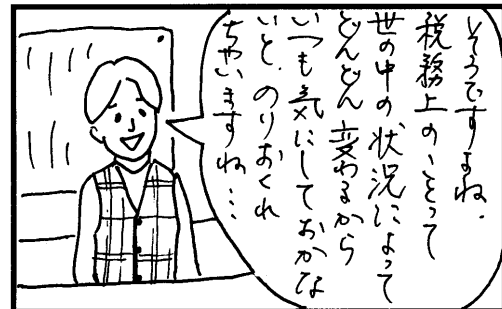 そうですよね.
税務上のことって
世の中の状況によって
どんどん変わるから
いつも気にしておかな
いと、のりおくれ
ちゃいますね…